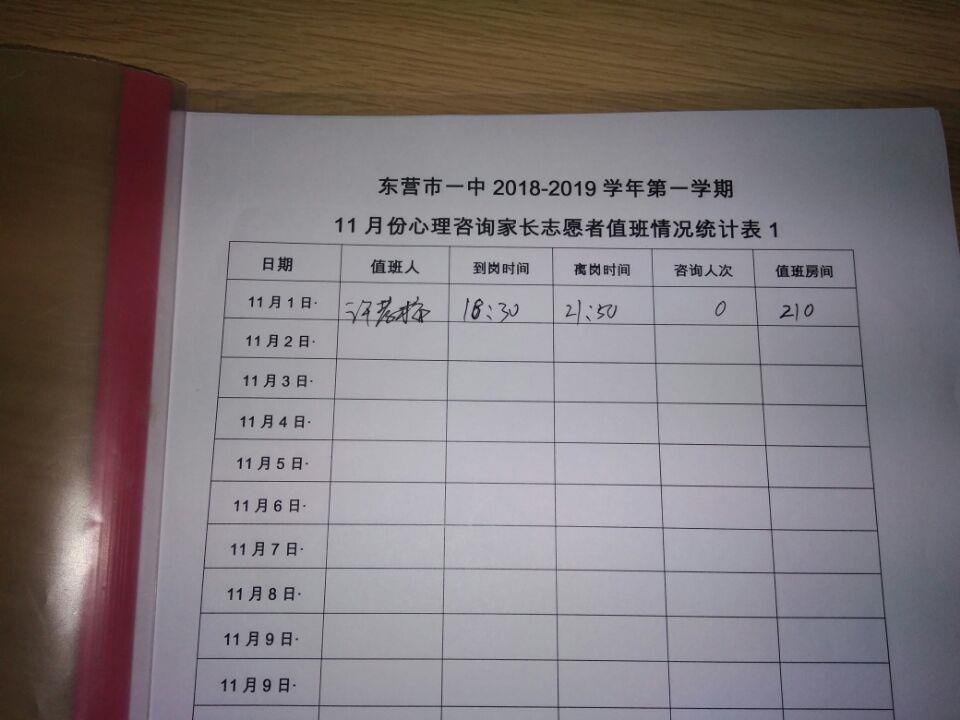 东营市一中 2018-2019 学年第一学期
11 月份心理咨询家长志愿者值班情况统计表 1
日期 值班人 到岗时间 离岗时间 咨询人次 值班房间
11 月 1 日· 许 18:30 21:50 0 210
11 月 2 日·
11 月 3 日·
11 月 4 日·
11 月 5 日·
11 月 6 日·
11 月 7 日·
11 月 8 日·
11 月 9 日·
11 月 9 日·